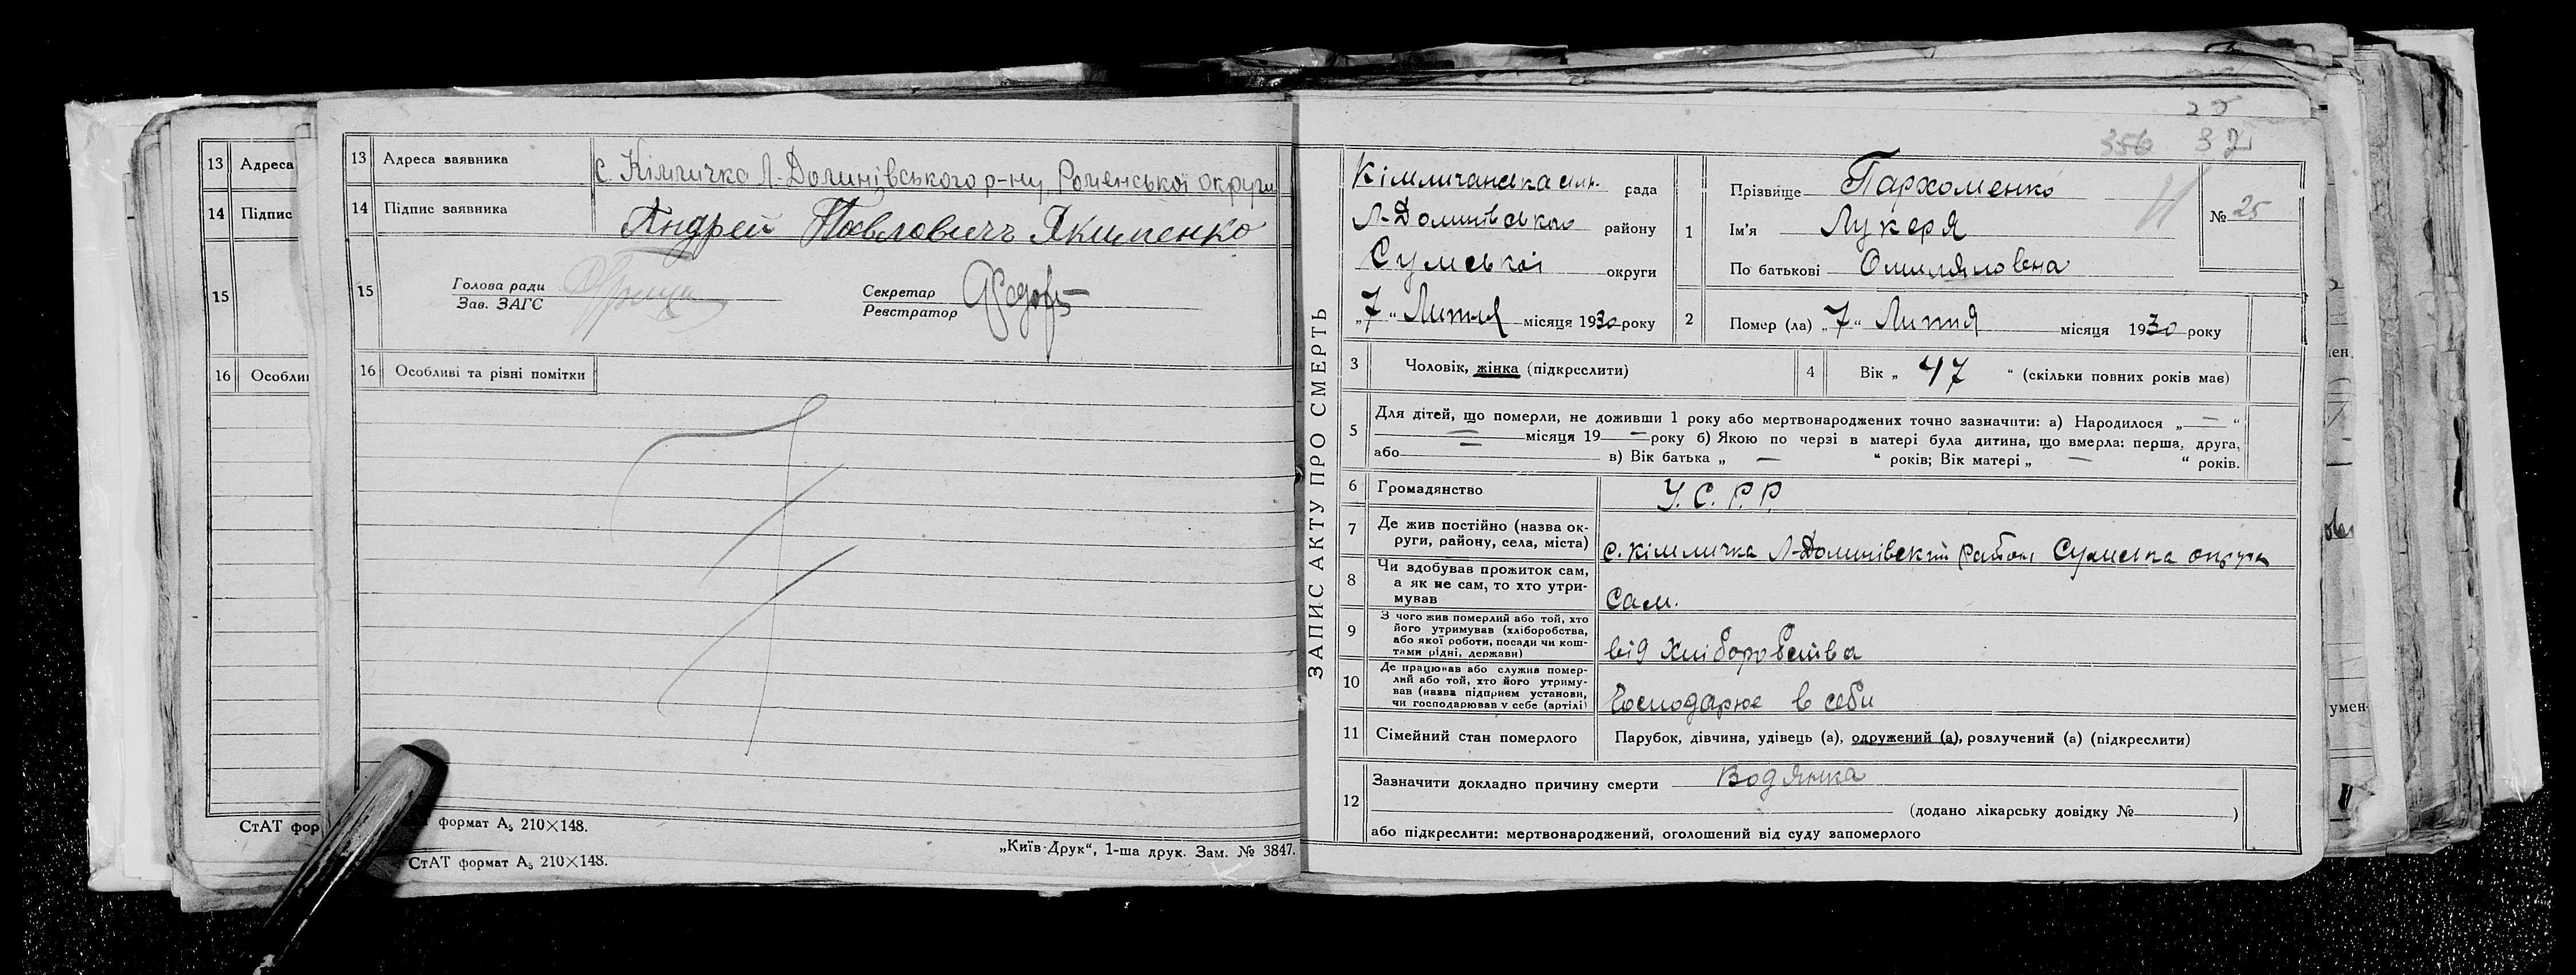 13 Адреса
14 Підпис
15
16 Особли
СтАТ фор
13 Адреса заявника с. Кімличка Л-Долинівського р-ну Роменської округи
14 Підпис заявника Андрей Павловичъ Якименко
15 Голова ради
Зав. ЗАГС
Секретар
Реєстратор
16 Особливі та різні помітки
формат А₅ 210×148.
СтАТ формат А₅ 210×148.
„Київ-Друк“, 1-ша друк. Зам. № 3847.
25
356 32
ЗАПИС АКТУ ПРО СМЕРТЬ
Кімличанська сіл. рада
Л-Долинівського району
Сумської округи
„7“ Липня місяця 1930 року
1 Прізвище Пархоменко
Ім'я Лукеря
По батькові Омиляновна
№ 25
2 Помер (ла) „7“ Липня місяця 1930 року
3 Чоловік, жінка (підкреслити)
4 Вік „ 47 “ (скільки повних років має)
5 Для дітей, що померли, не доживши 1 року або мертвонароджених точно зазначити: а) Народилося „ — “
— місяця 19 — року б) Якою по черзі в матері була дитина, що вмерла: перша, друга,
або — в) Вік батька „ — “ років; Вік матері „ — “ років.
6 Громадянство У.С.Р.Р.
7 Де жив постійно (назва ок-
руги, району, села, міста) с. Кімличка Л-Долинівский район Сумська округа
8 Чи здобував прожиток сам,
а як не сам, то хто утри-
мував Сам.
9 З чого жив померлий або той, хто
його утримував (хліборобства,
або якої роботи, посади чи кош-
тами рідні, держави) від Хліборобства
10 Де працював або служив помер-
лий або той, хто його утриму-
вав (назва підприєм установи,
чи господарював у себе (артілі) Господарює в себи
11 Сімейний стан померлого Парубок, дівчина, удівець (а), одружений (а), розлучений (а) (підкреслити)
12 Зазначити докладно причину смерти Водянка
(додано лікарську довідку № )
або підкреслити: мертвонароджений, оголошений від суду запомерлого
умен-